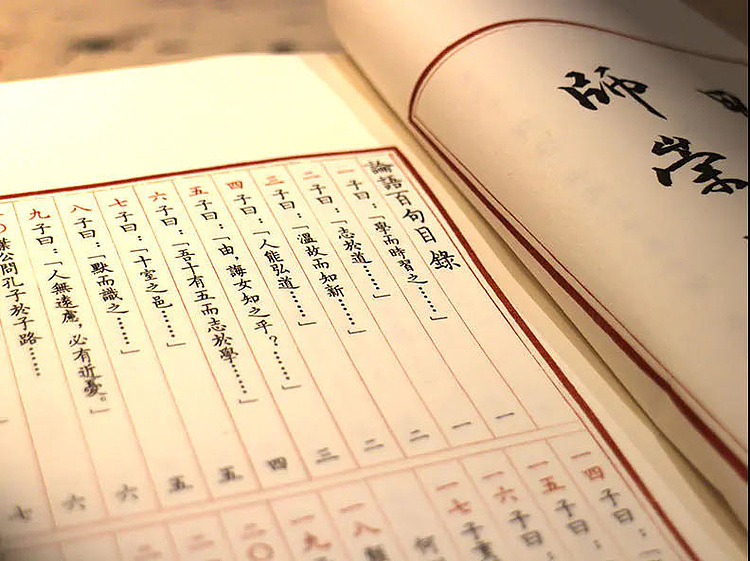 師
論語百句目錄
一 子曰：「學而時習之……」 一
二 子曰：「志於道……」 一
三 子曰：「溫故而知新……」 二
四 子曰：「人能弘道……」 二
五 子曰：「由，誨女知之乎？……」 三
六 子曰：「吾十有五而志於學……」 四
七 子曰：「十室之邑……」 五
八 子曰：「默而識之……」 五
九 子曰：「人無遠慮，必有近憂。」 六
〇 葉公問孔子於子路…… 六
七
一四 子曰：「
一五 子曰：
一六 子曰：
一七 子貢
何
一八
一九
二〇
二
二